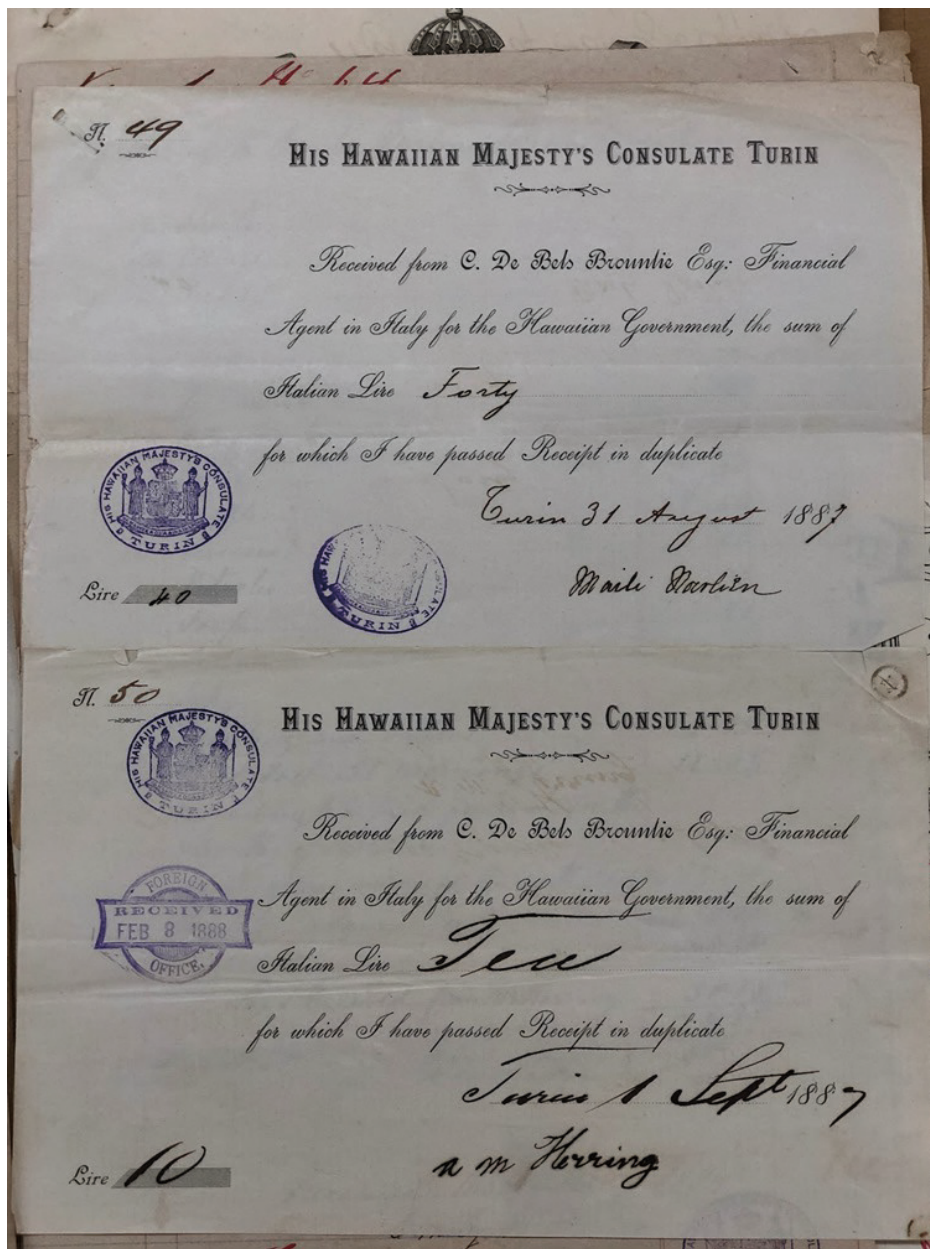 N. 49
HIS HAWAIIAN MAJESTY'S CONSULATE TURIN
Received from C. De Bels Brountie Esq: Financial
Agent in Italy for the Hawaiian Government, the sum of
Italian Lire Forty
for which I have passed Receipt in duplicate
HIS HAWAIIAN MAJESTY'S CONSULATE
TURIN
Turin 31 August 1887
HIS HAWAIIAN CONSULATE
TURIN
Lire 40
Maili
N. 50
HIS HAWAIIAN MAJESTY'S CONSULATE
TURIN
HIS HAWAIIAN MAJESTY'S CONSULATE TURIN
Received from C. De Bels Brountie Esq: Financial
Agent in Italy for the Hawaiian Government, the sum of
FOREIGN
RECEIVED
FEB 8 1888
OFFICE.
Italian Lire Ten
for which I have passed Receipt in duplicate
Turin 1 Sept 1887
a m Herring
Lire 10